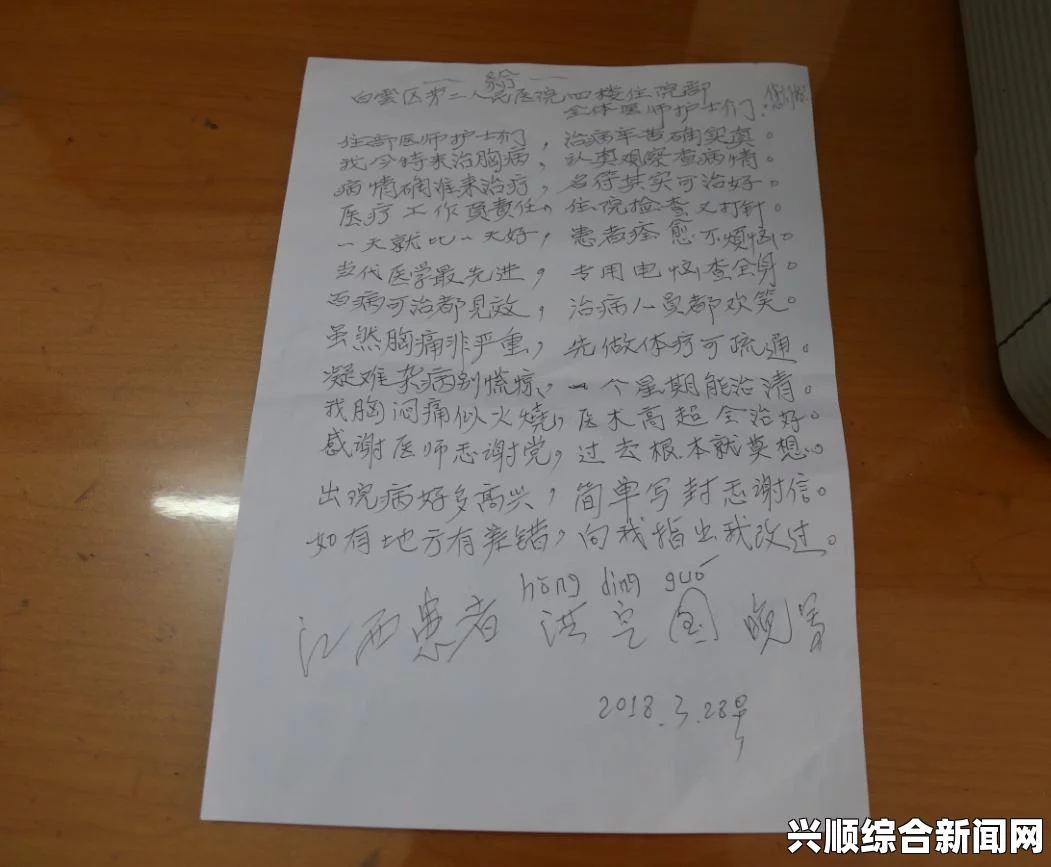 一 給 一
白雲区第二人民医院四楼住院部
全体医师护士们:您们好!
住部医师护士们,治病辛苦确实真。
我今特来治胸病,认真观察查病情。
病情确准来治疗,名符其实可治好。
医疗工作負責任,住院检查又打针。
一天就比一天好,患者痊愈不烦恼。
当代医学最先进,专用电脑查全身。
百病可治都見效,治病人员都欢笑。
虽然胸痛非严重,先做体疗可疏通。
凝难杂病别慌惊,一个星期能治清。
我胸闷痛似火燒,医术高超会治好。
感谢医师志谢党,过去根本就莫想。
出院病好多高兴,简单写封志谢信。
如有地方有差错,向我指出我改过。
hōng dìng guó
江西患者 洪定国
2018.3.28号
兴顺综合新闻网